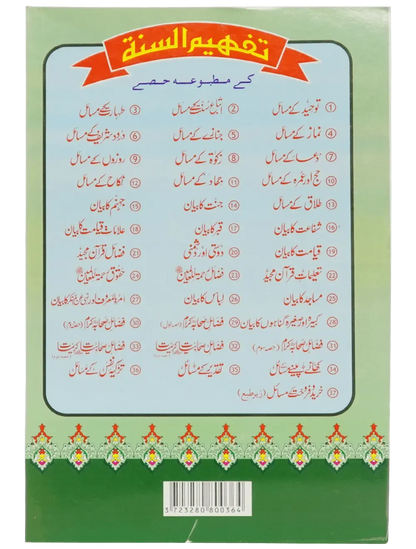 تفہیم السنۃ
کے مطبوعہ حصے
① توحید کے مسائل ② اتباع سنت کے مسائل ③ طہارت کے مسائل
④ نماز کے مسائل ⑤ جنازے کے مسائل ⑥ درود شریف کے مسائل
⑦ دعا کے مسائل ⑧ زکوٰۃ کے مسائل ⑨ روزوں کے مسائل
⑩ حج اور عمرہ کے مسائل ⑪ جہاد کے مسائل ⑫ نکاح کے مسائل
⑬ طلاق کے مسائل ⑭ جنت کا بیان ⑮ جہنم کا بیان
⑯ شفاعت کا بیان ⑰ قبر کا بیان ⑱ علامات قیامت کا بیان
⑲ قیامت کا بیان ⑳ دوستی اور دشمنی ㉑ فضائل قرآن مجید
㉒ تعلیمات قرآن مجید ㉓ فضائل رحمۃ للعالمین ﷺ ㉔ حقوق رحمۃ للعالمین ﷺ
㉕ مساجد کا بیان ㉖ لباس کا بیان ㉗ امر بالمعروف اور نہی عن المنکر کا بیان
㉘ کبیرہ اور صغیرہ گناہوں کا بیان ㉙ فضائل صحابہ کرام (حصہ اول) ㉚ فضائل صحابہ کرام (حصہ دوم)
㉛ فضائل صحابہ کرام (حصہ سوم) ㉜ فضائل صحابیات ㉝ فضائل صحابیات
㉞ کھانے پینے کے مسائل ㉟ تقدیر کے مسائل ㊱ تزکیہ نفس کے مسائل
㊲ خرید و فروخت کے مسائل (زیر طبع)
3 723280 800364